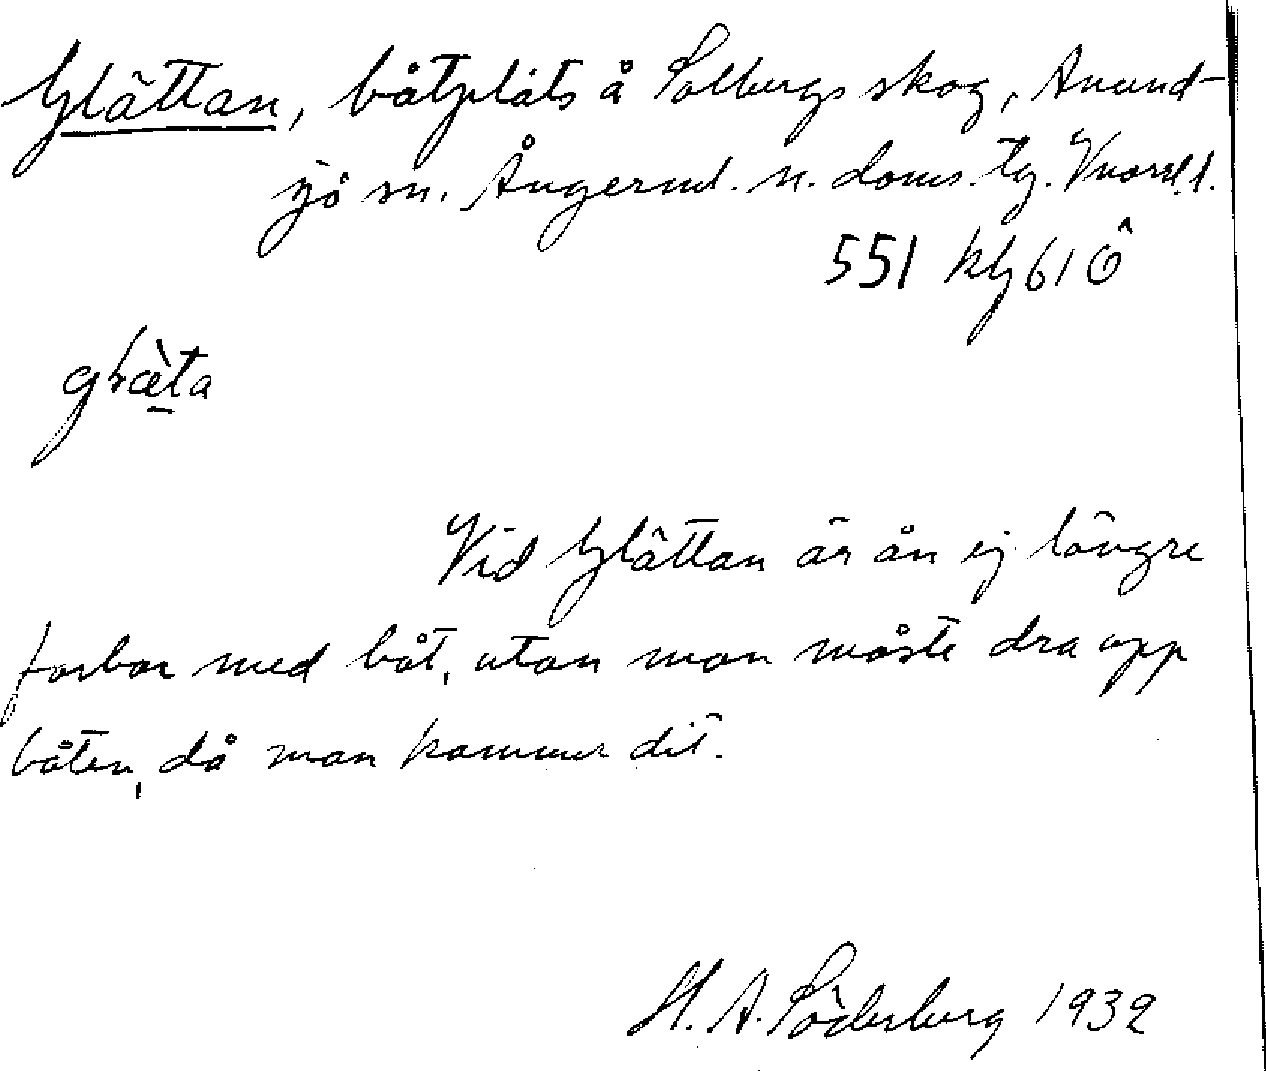 Glättan, båtplats å Solbergs skog, Anund-
sjö sn. Ångerml. n. doms. tg. Vnorrl. l.
551 kbg 61 Ö
glæ̀ta
Vid Glättan är ån ej längre
farbar med båt, utan man måste dra upp
båten, då man kommer dit.
H. A. Söderberg 1932